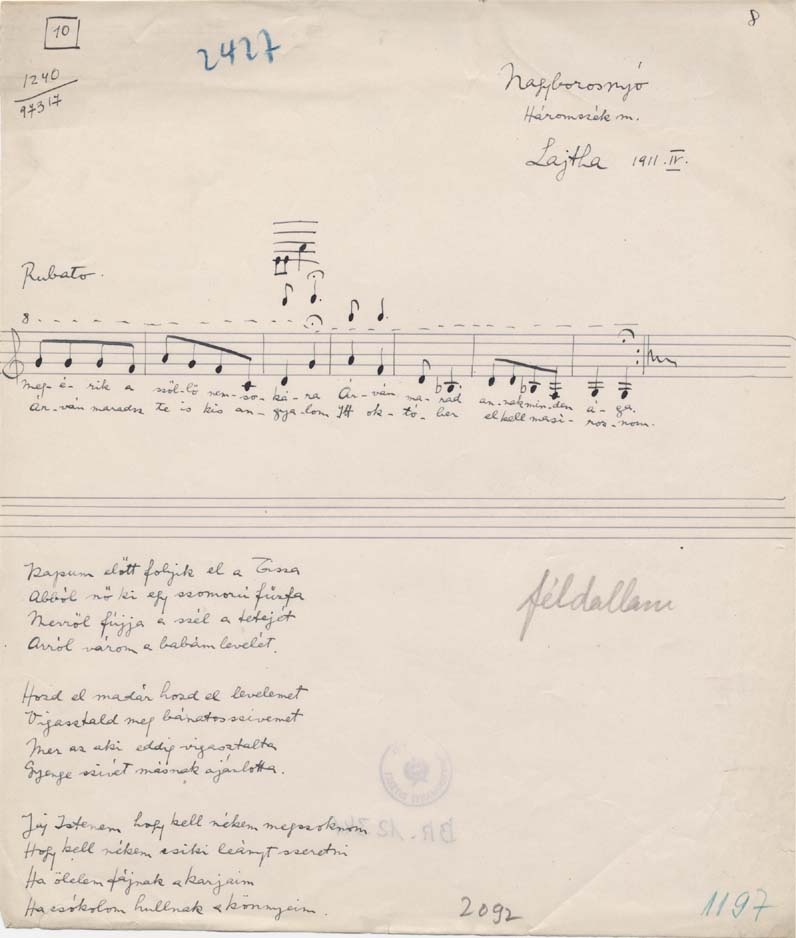 10
8
2427
1240
97317
Nagyborosnyó
Háromszék m.
Lajtha 1911. IV.
Rubato.
8
meg-é-rik a ször-lő nem-so-ká-ra Ár-ván ma-rad an-nak min-den á-ga.
Ár-ván maradsz te is kis an-gya-lom Itt ok-tó-ber el kell masi-roz-nom.
Kapum előtt foljik el a Tissa
Abból nő ki egy szomorú fűzfa
Merről fújja a szél a tetejét
Arról várom a babám levelét.
féldallam
Hozd el madár hozd el levelemet
Vigasztald meg bánatos szivemet
Mer az aki eddig vigasztalta
Gyenge szivét másnak ajánlotta.
Jáj Istenem hogy kell nékem megszoknom
Hogy kell nékem csiki leányt szeretni
Ha ölelem fájnak a karjaim
Ha csókolom hullnak a könnyeim.
2092
1197